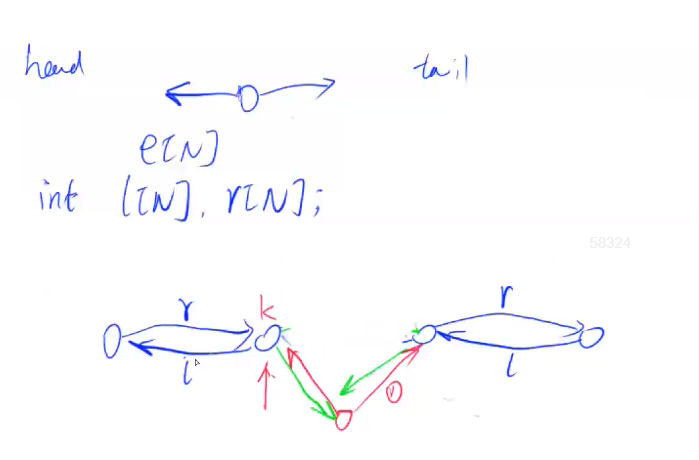 head tail
e[N]
int l[N], r[N];
58324
r k r
l l
①